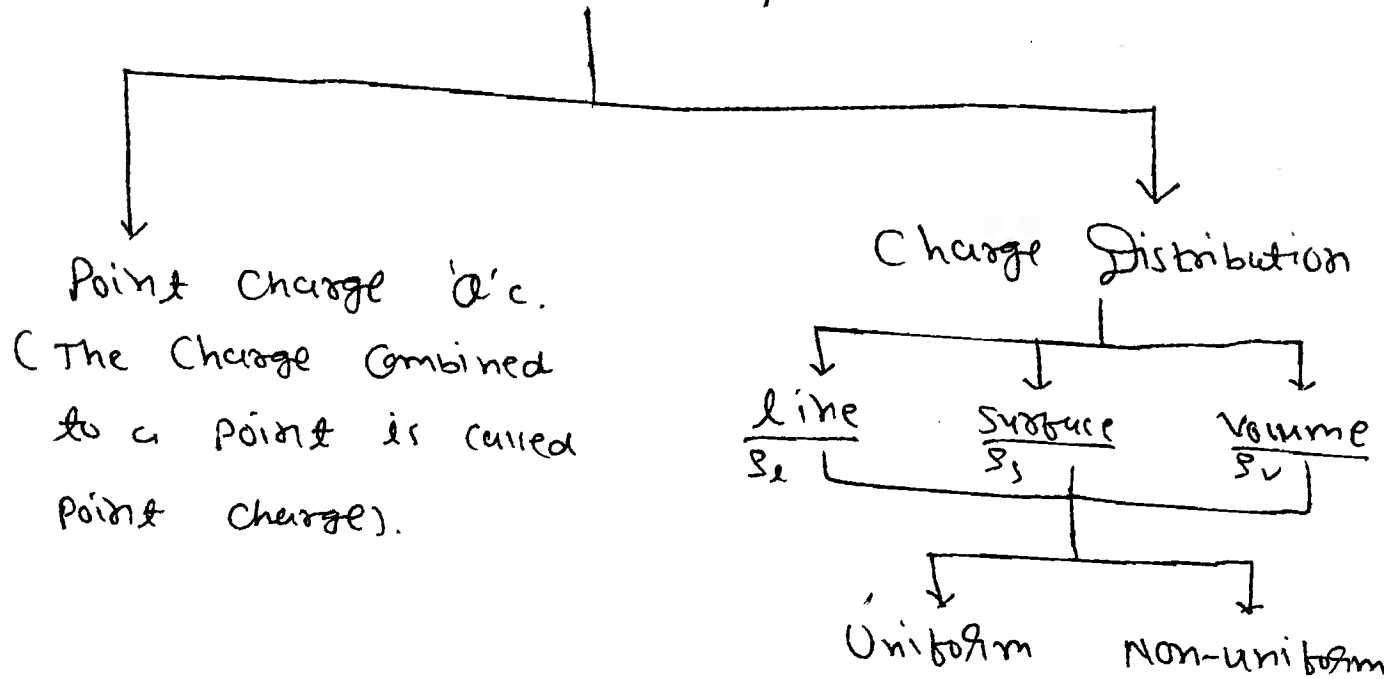 Point Charge 'Q' c.
(The Charge Combined
to a point is called
point charge).
Charge Distribution
line surface volume
ρl ρs ρv
Uniform Non-uniform